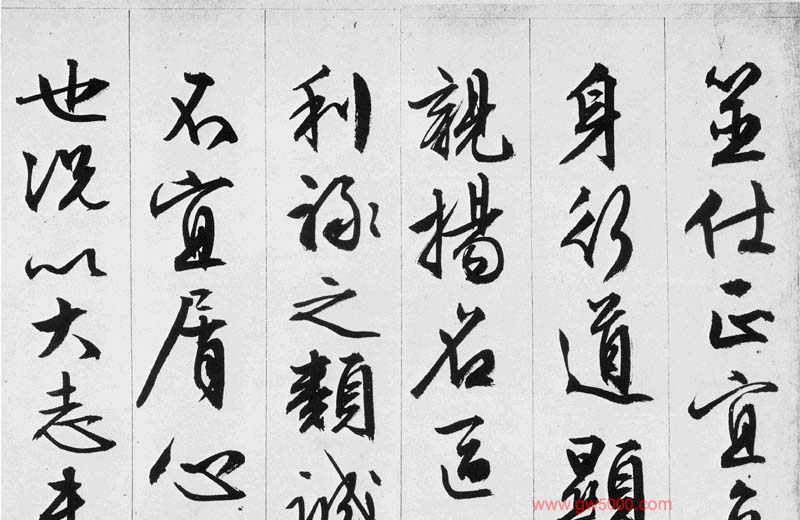 筮仕正宜
身行道顯
親揚名區
利祿之類誠
不宜屑心
也況以大志
www.gw5000.com